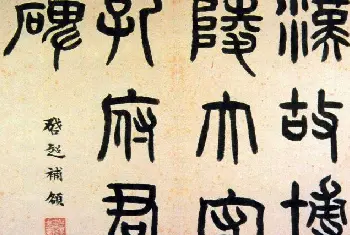 漢故博
陵大守
孔府君
碑
啓超補額